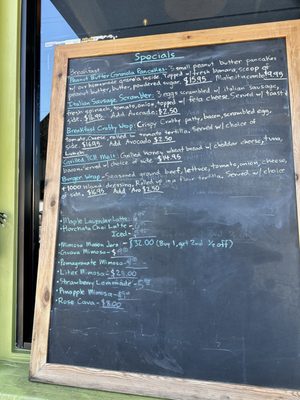 Specials
Breakfast
Peanut Butter Granola Pancakes- Small peanut butter pancakes
w/ our homemade granola inside. Topped w/ fresh banana, scoop of
peanut butter, butter, powdered sugar. $15.95 Make it a combo $9.95
Italian Sausage Scrambler- 3 eggs scrambled w/ italian sausage,
fresh spinach, tomato, onion, topped w/ feta cheese. Served w/ toast &
side. $16.95 Add Avocado $2.50
Breakfast Crafty Wrap- Crispy potato patty, bacon, scrambled egg,
tomato, cheese, rolled in tomato tortilla. Served w/ choice of
side. $16.95 Add Avocado $2.50
Lunch
Grilled Melt- Grilled honey wheat bread w/ cheddar cheese, tuna,
bacon. Served w/ choice of side $14.95
Burger Wrap- Seasoned ground beef, lettuce, tomato, onion, cheese,
+ 1000 island dressing. Rolled in a flour tortilla. Served w/ choice
of side. $16.95 Add Avo $2.50
• Maple Lavender Latte-
• Horchata Chai Latte -
Iced -
• Mimosa Mason Jars - $32.00 (Buy 1, get 2nd ½ off)
• Guava Mimosa -
• Pomegranate Mimosa -
• Liter Mimosa - $24.00
• Strawberry Lemonade -
• Pineapple Mimosa -
• Rose Cava - $8.00